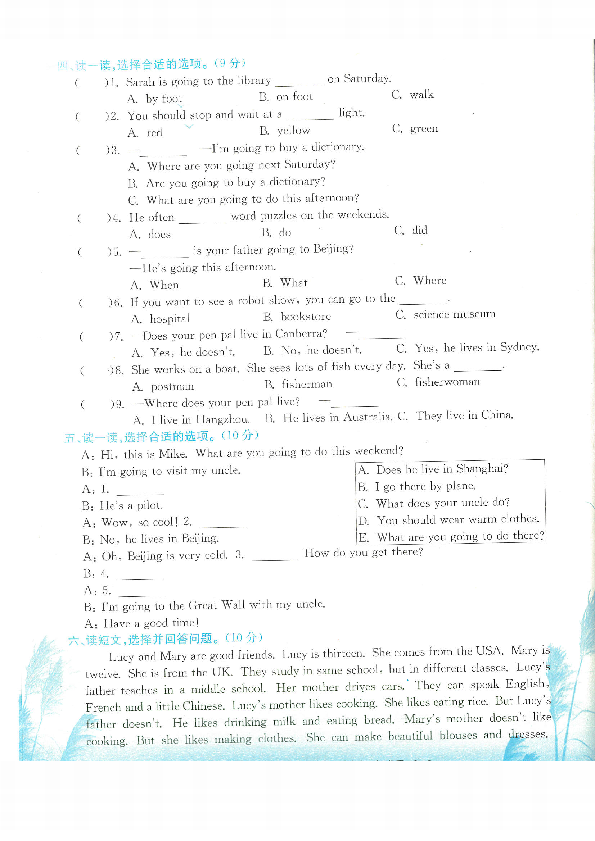 四、读一读,选择合适的选项。(9分)
( )1. Sarah is going to the library ________ on Saturday.
A. by foot B. on foot C. walk
( )2. You should stop and wait at a ________ light.
A. red B. yellow C. green
( )3. ________ —I'm going to buy a dictionary.
A. Where are you going next Saturday?
B. Are you going to buy a dictionary?
C. What are you going to do this afternoon?
( )4. He often ________ word puzzles on the weekends.
A. does B. do C. did
( )5. —________ is your father going to Beijing?
—He's going this afternoon.
A. When B. What C. Where
( )6. If you want to see a robot show, you can go to the ________.
A. hospital B. bookstore C. science museum
( )7. —Does your pen pal live in Canberra? —________
A. Yes, he doesn't. B. No, he doesn't. C. Yes, he lives in Sydney.
( )8. She works on a boat. She sees lots of fish every dry. She's a ________.
A. postman B. fisherman C. fisherwoman
( )9. —Where does your pen pal live? —________
A. I live in Hangzhou. B. He lives in Australia. C. They live in China.
五、读一读,选择合适的选项。(10分)
A: Hi, this is Mike. What are you going to do this weekend?
B: I'm going to visit my uncle.
A: 1. ________
B: He's a pilot.
A: Wow, so cool! 2. ________
B: No, he lives in Beijing.
A: Oh, Beijing is very cold. 3. ________ How do you get there?
B: 4. ________
A: 5. ________
B: I'm going to the Great Wall with my uncle.
A: Have a good time!
A. Does he live in Shanghai?
B. I go there by plane.
C. What does your uncle do?
D. You should wear warm clothes.
E. What are you going to do there?
六、读短文,选择并回答问题。(10分)
Lucy and Mary are good friends. Lucy is thirteen. She comes from the USA. Mary is
twelve. She is from the UK. They study in same school, but in different classes. Lucy's
father teaches in a middle school. Her mother drives cars. They can speak English,
French and a little Chinese. Lucy's mother likes cooking. She likes eating rice. But Lucy's
father doesn't. He likes drinking milk and eating bread. Mary's mother doesn't like
cooking. But she likes making clothes. She can make beautiful blouses and dresses.